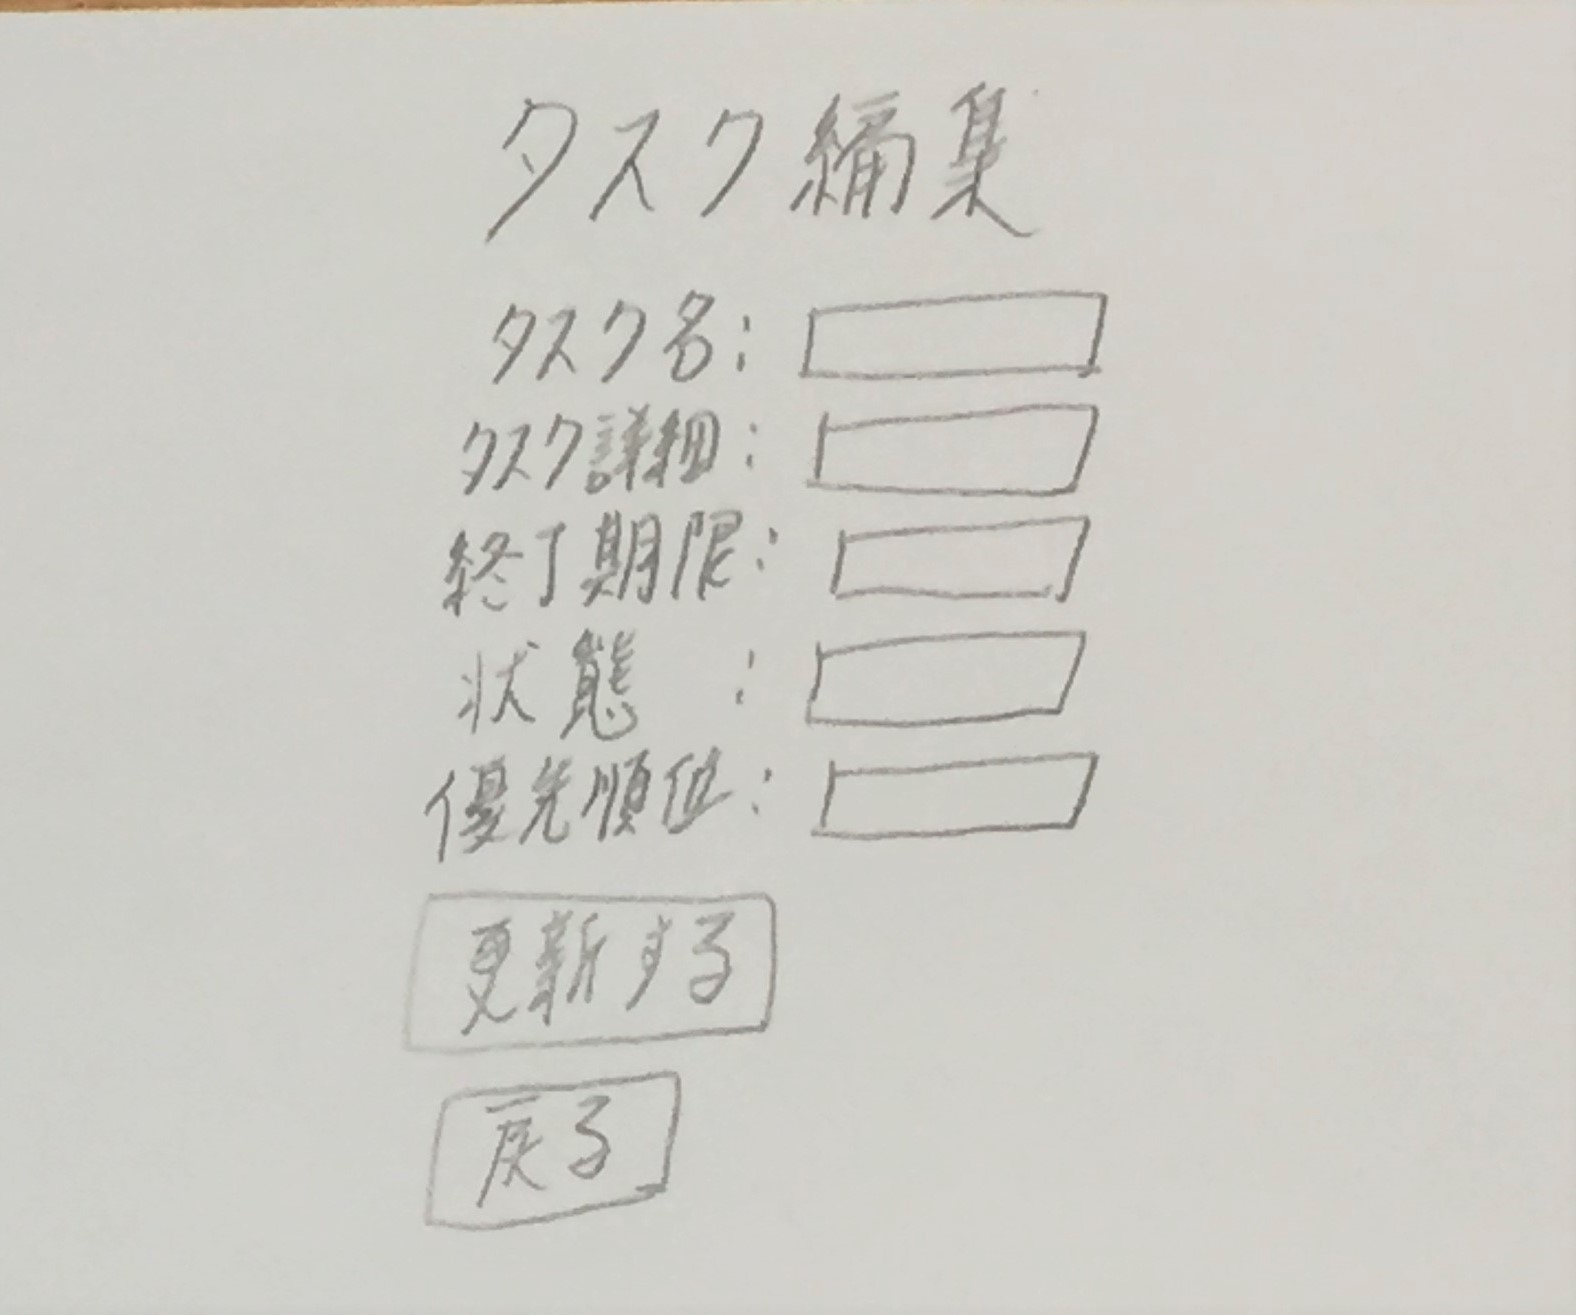 タスク編集
タスク名:
タスク詳細:
終了期限:
状態 :
優先順位:
更新する
戻る